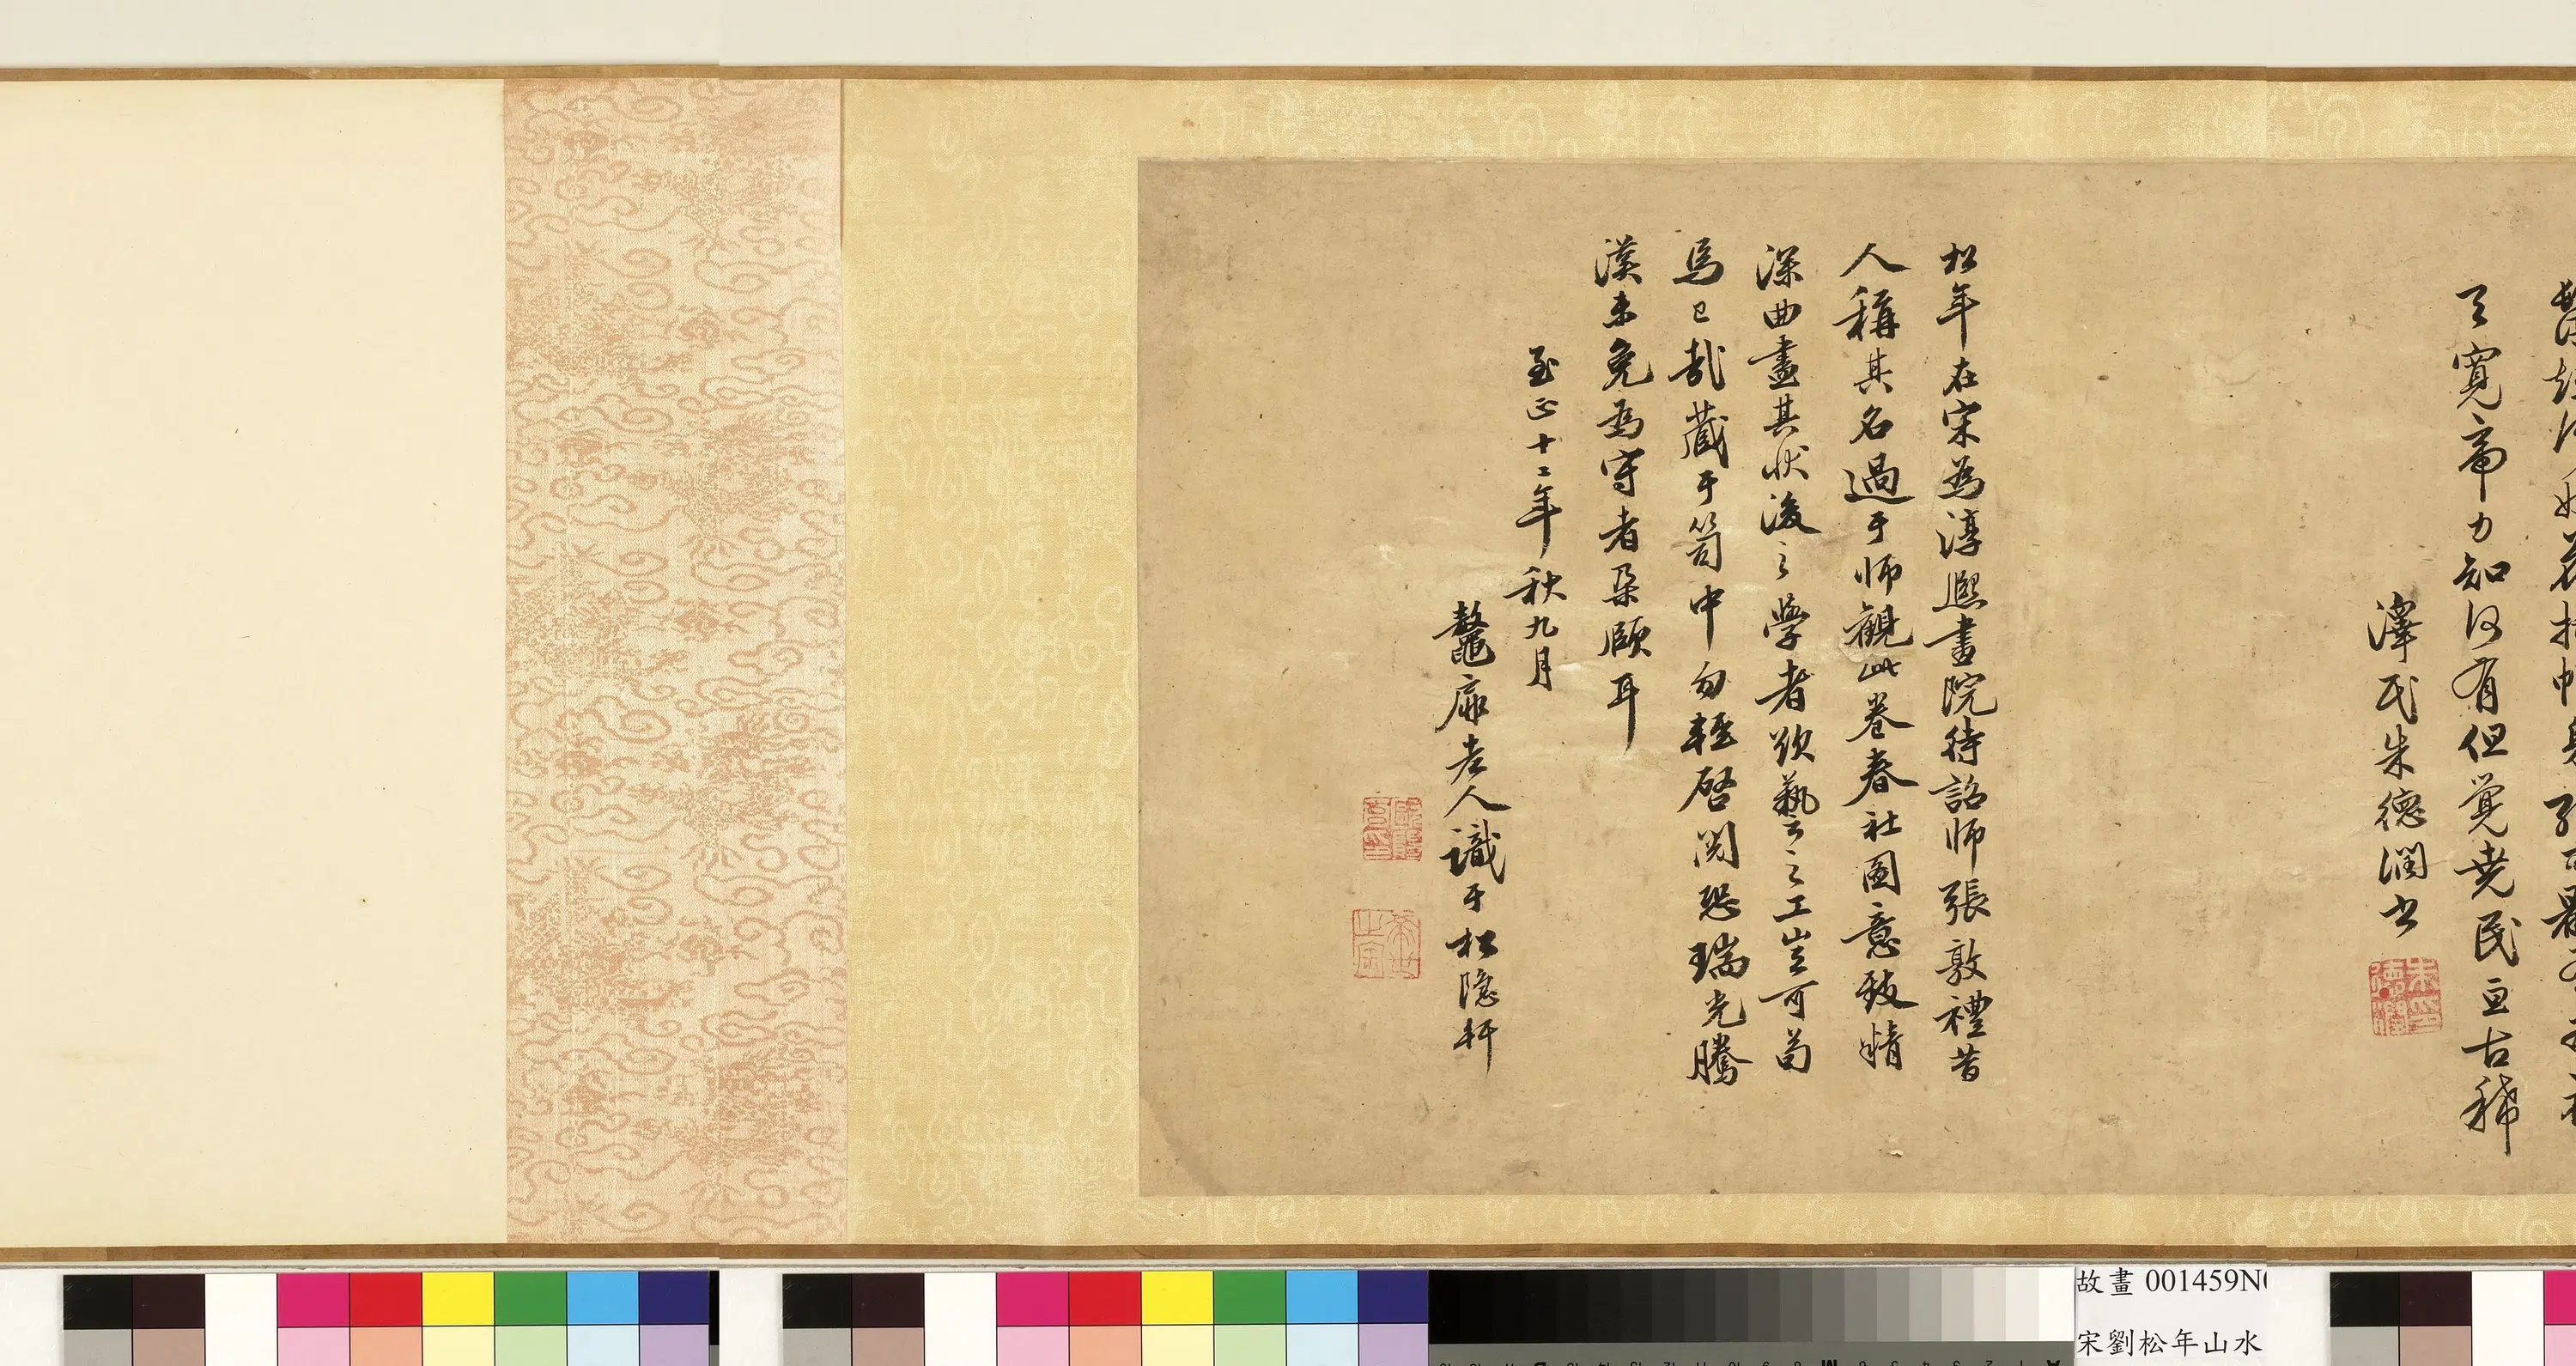 了寬帝力知何有但覺堯民亘古稀
澤民朱德潤書
朱德潤印
松年在宋為淳熙畫院待詔師張敦禮昔
人稱其名過于師觀此卷春社圖意致情
深曲盡其狀後之學者欲藝之工豈可苟
焉已哉藏于笥中勿輕啓閱恐瑞光騰
漢未免為守者朵頤耳
至正十二年秋九月
鼇廍老人識于松隱軒
故畫 001459N
宋劉松年山水